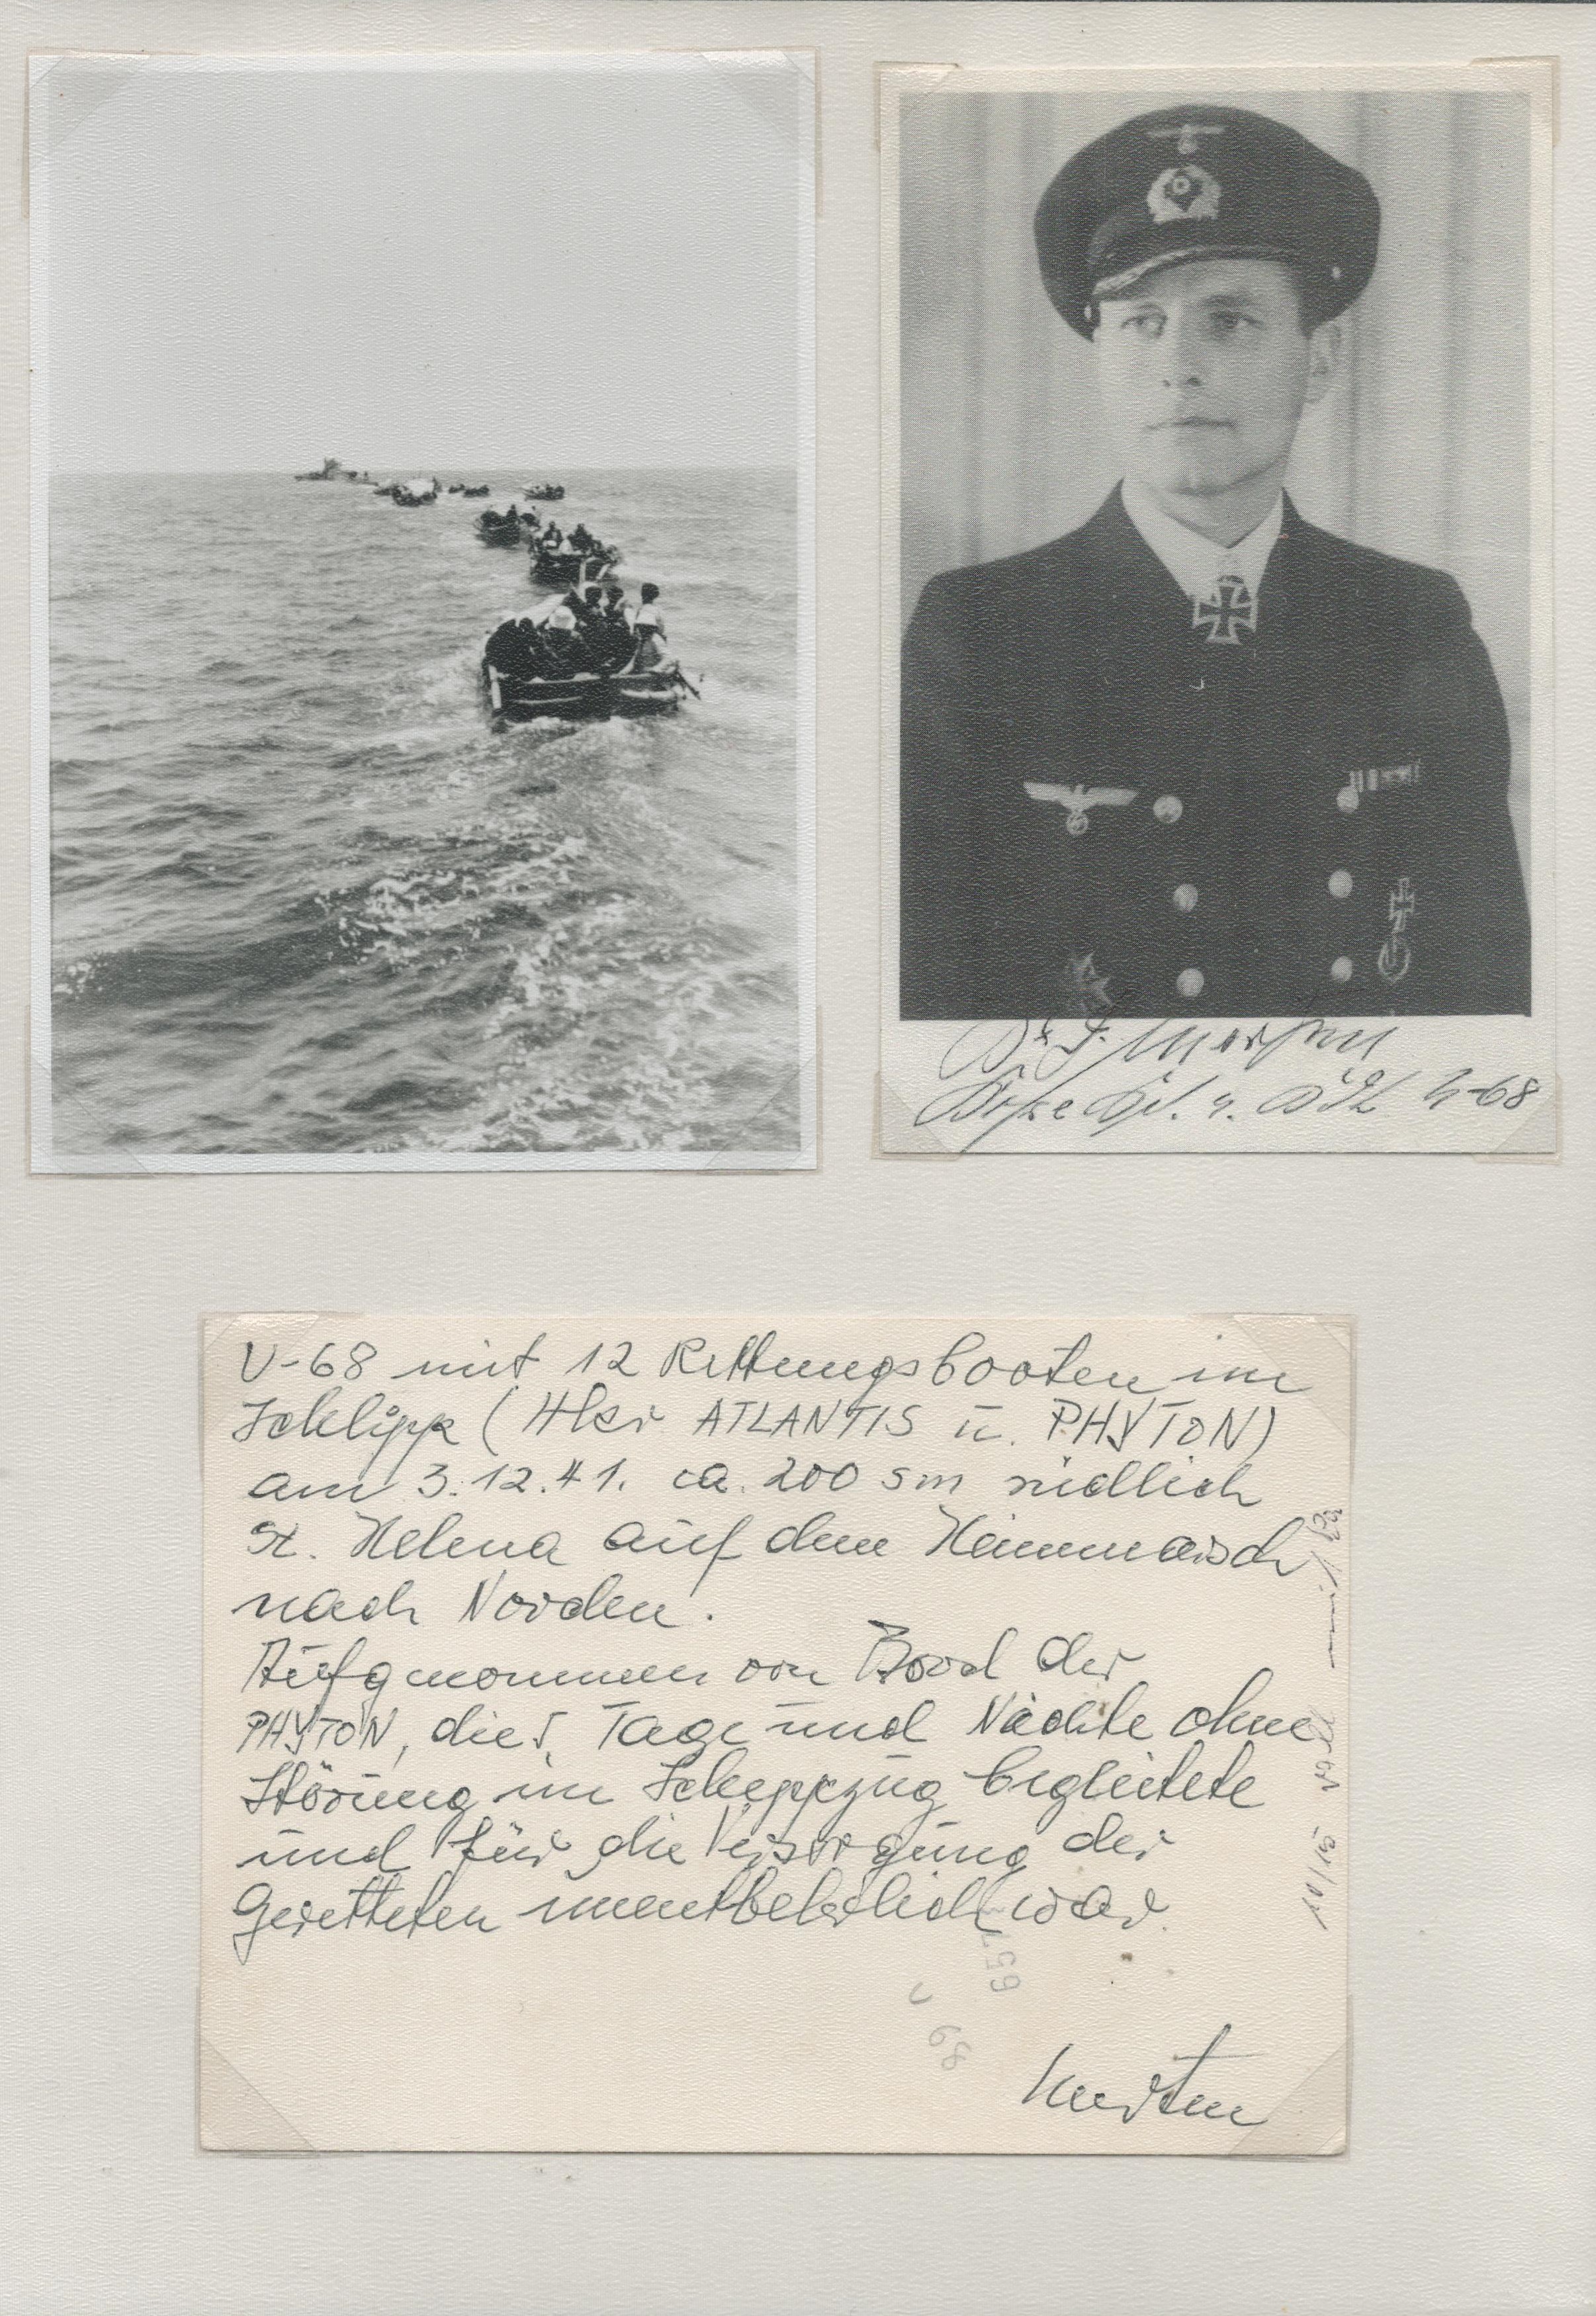 Dr. F. Merten
U-68
U-68 mit 12 Rettungsbooten im
Schlipp (Hksr ATLANTIS u. PHYTON)
am 3.12.41. ca. 200 sm südlich
St. Helena auf dem Heimmarsch
nach Norden.
Aufgenommen von Bord der
PHYTON, die Tage und Nächte ohne
Störung im Schleppzug begleitete
und für die Versorgung der
Geretteten unentbehrlich war.
U 68
Merten